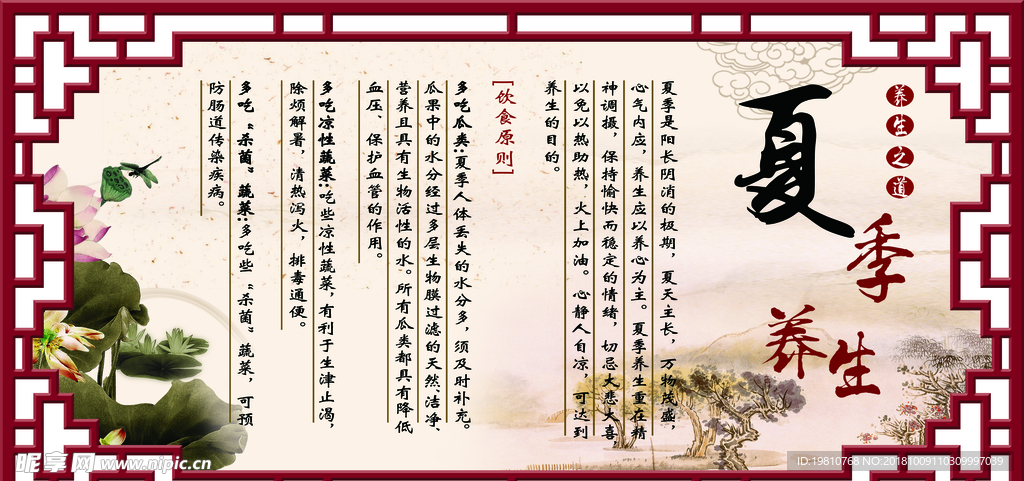 养生之道
夏季养生
夏季是阳长阴消的极期，夏天主长，万物茂盛，
心气内应，养生应以养心为主。夏季养生重在精
神调摄，保持愉快而稳定的情绪，切忌大悲大喜
以免以热助热，火上加油。心静人自凉，可达到
养生的目的。
[饮食原则]
多吃瓜类:夏季人体丢失的水分多，须及时补充。
瓜果中的水分经过多层生物膜过滤的天然、洁净、
营养且具有生物活性的水。所有瓜类都具有降低
血压、保护血管的作用。
多吃凉性蔬菜:吃些凉性蔬菜，有利于生津止渴，
除烦解暑，清热泻火，排毒通便。
多吃“杀菌”蔬菜:多吃些“杀菌”蔬菜，可预
防肠道传染疾病。
昵享网 www.nipic.cn
ID:19810768 NO:20181009110309997039